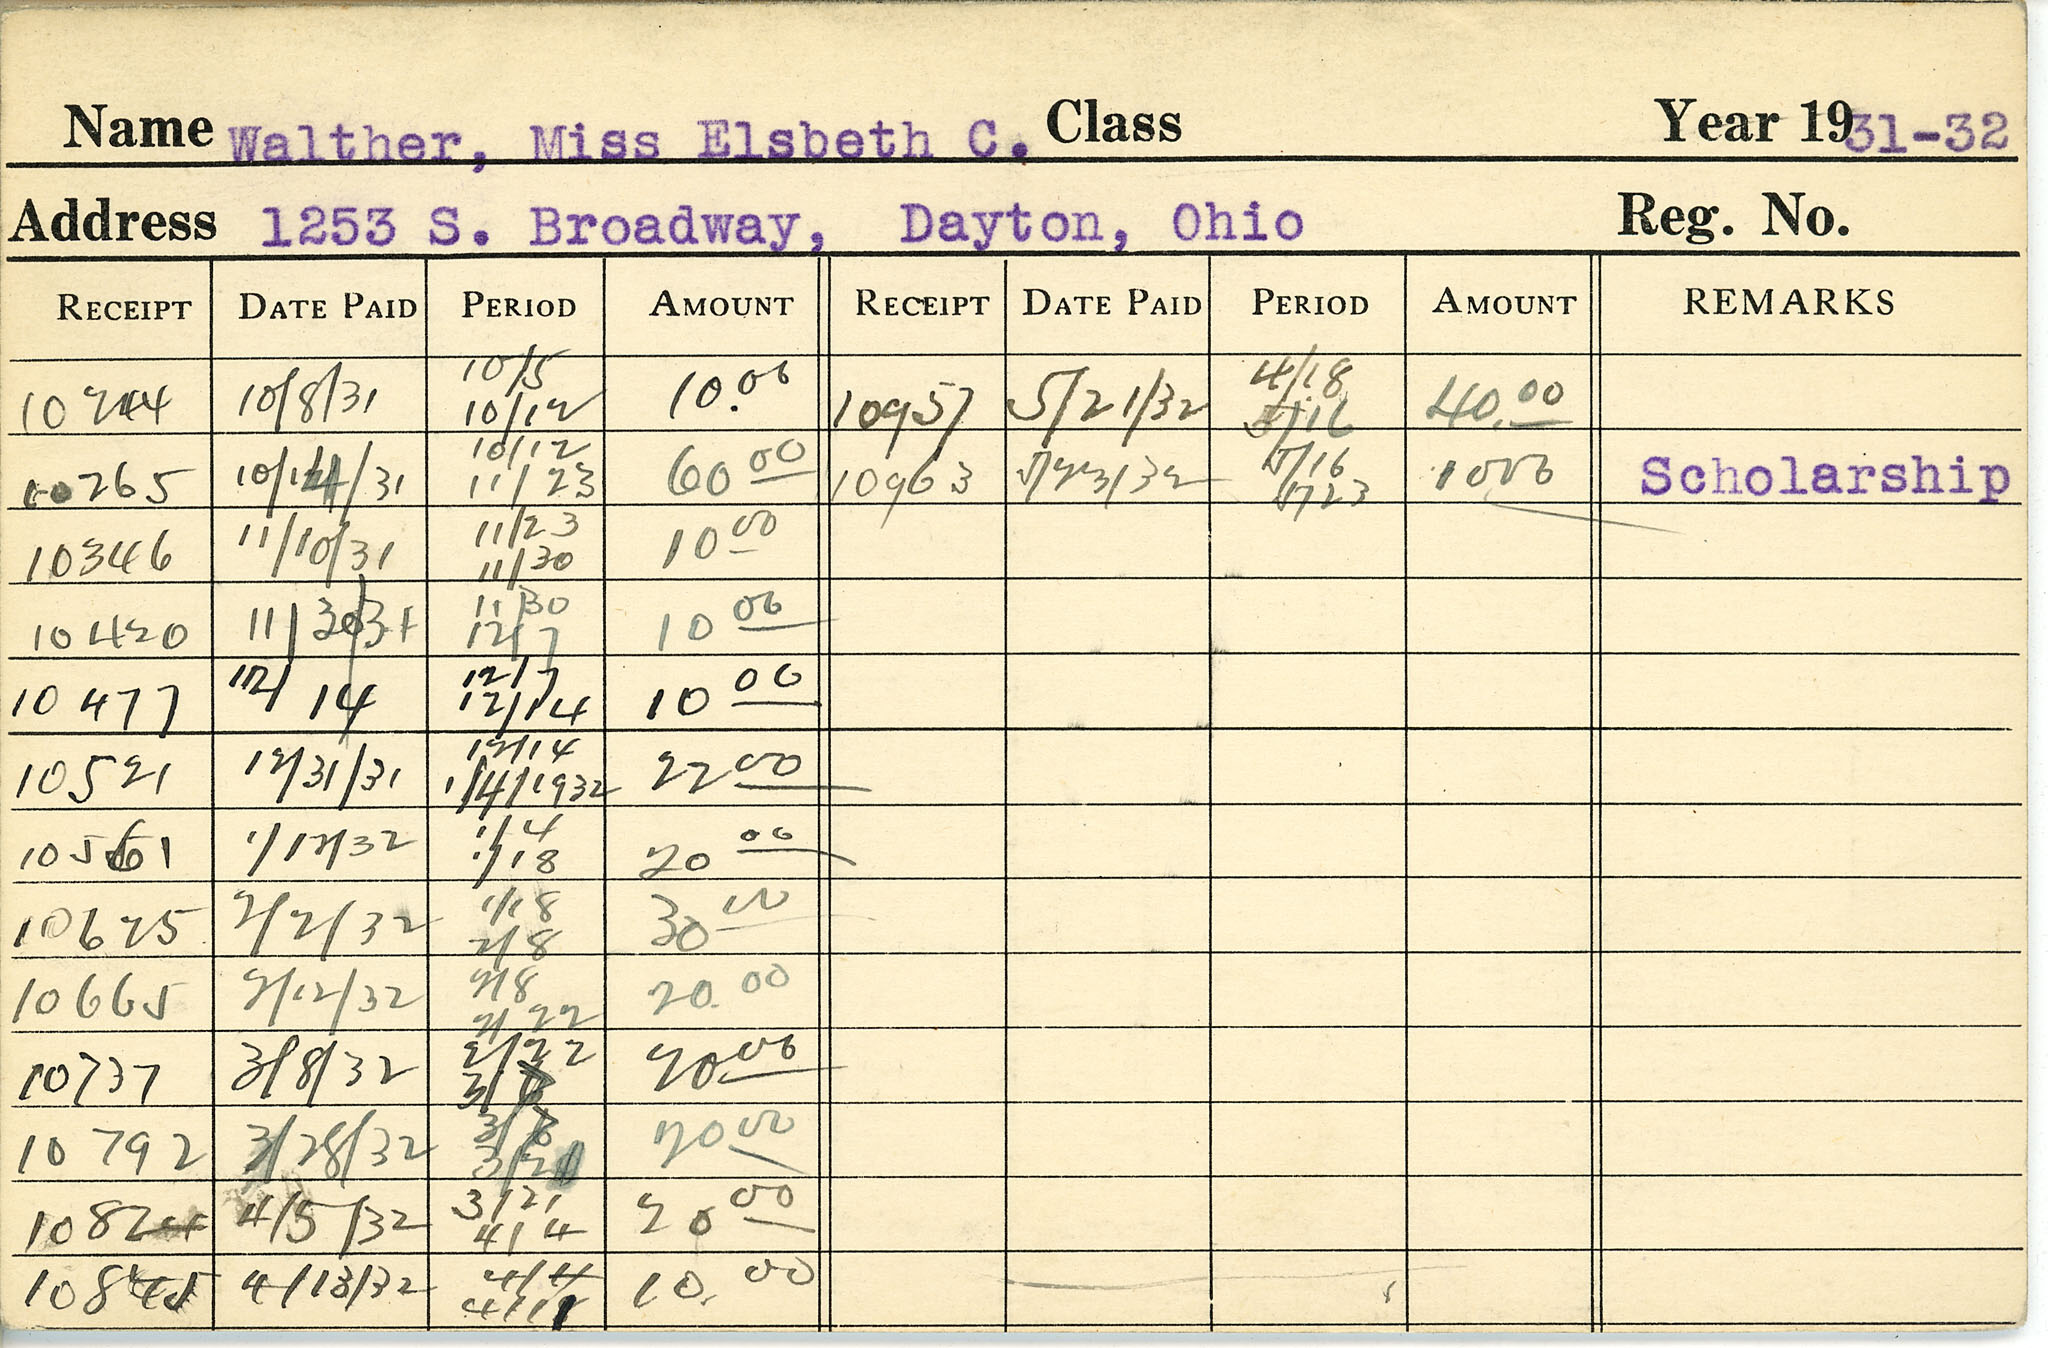 Name Walther, Miss Elsbeth C. Class Year 1931-32
Address 1253 S. Broadway, Dayton, Ohio Reg. No.
RECEIPT DATE PAID PERIOD AMOUNT RECEIPT DATE PAID PERIOD AMOUNT REMARKS
10/5 4/18
10244 10/8/31 10/12 10.00 10957 5/21/32 5/16 40.00
10/12 5/16
10265 10/14/31 11/23 60 00 10963 5/23/32 5/23 10 00 Scholarship
11/23
10346 11/10/31 11/30 10 00
11/30
10420 11/30/31 12/7 10 00
12/7
10477 12/14 12/14 10 00
12/14
10521 12/31/31 1/4/1932 22 00
1/4
10561 1/12/32 1/18 20 00
1/18
10625 2/2/32 2/8 30 00
2/8
10665 2/12/32 2/22 20.00
2/22
10737 3/8/32 3/7 20.00
3/7
10792 3/28/32 3/21 20 00
3/21
10824 4/5/32 4/4 20 00
4/4
10845 4/13/32 4/11 10. 00